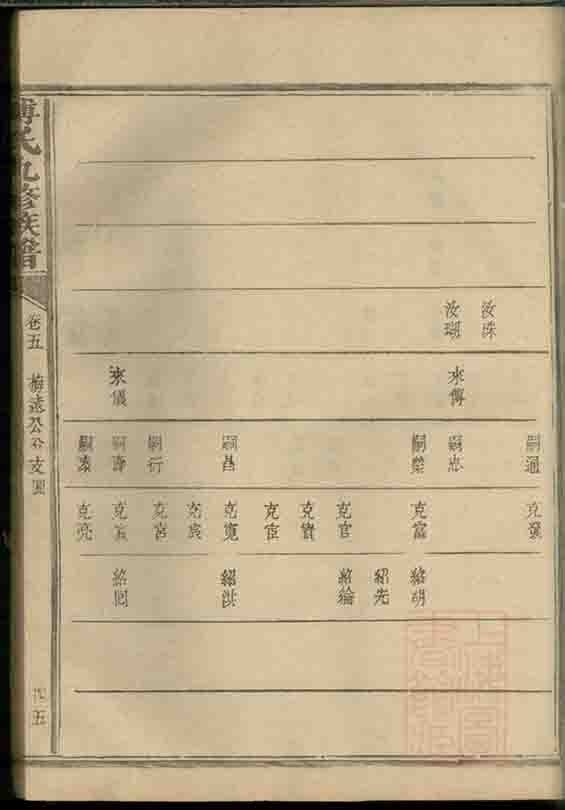 傅氏九修族譜
卷五
梅遠公分支圖
汝珠
汝瑚
來傳
來儀
嗣通
嗣忠
嗣榮
嗣昌
嗣衍
嗣壽
嗣泰
克富
克官
克實
克宦
克寬
克宾
克宮
克亮
紹胡
紹先
紹綸
紹洪
紹回
五